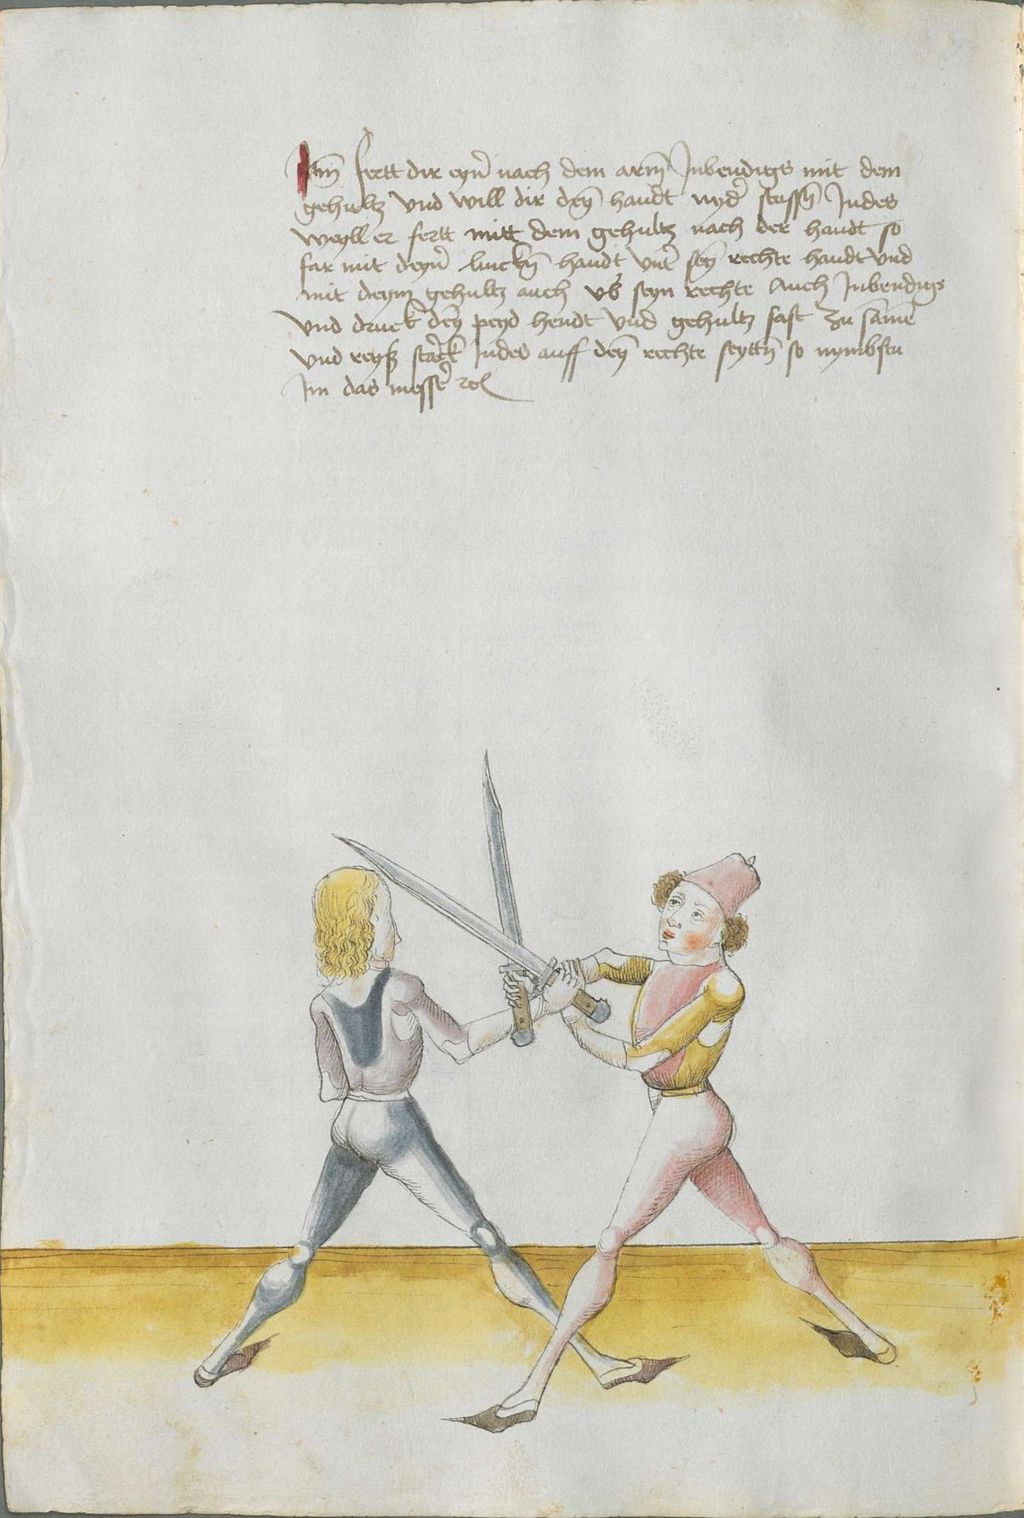 Itm̄ fertt dir eyn̄ nach dem arm̄ Inbendigs mit dem
gehultz vnd will dir dēy handt nyd̄ stossn̄ Indes
weyll er fertt mitt dem gehultz nach der handt so
far mit deyn̄ linckn̄ handt vnt̄ sey rechte handt vnd
mit deym gehultz auch vb̄ seyn rechte Auch Inbendigs
vnd druck dēy peyd hendt vnd gehultz fast zu same
vnd reyß starck Indes auff dēy rechte seyttn̄ so nymbstu
Im das messer̄